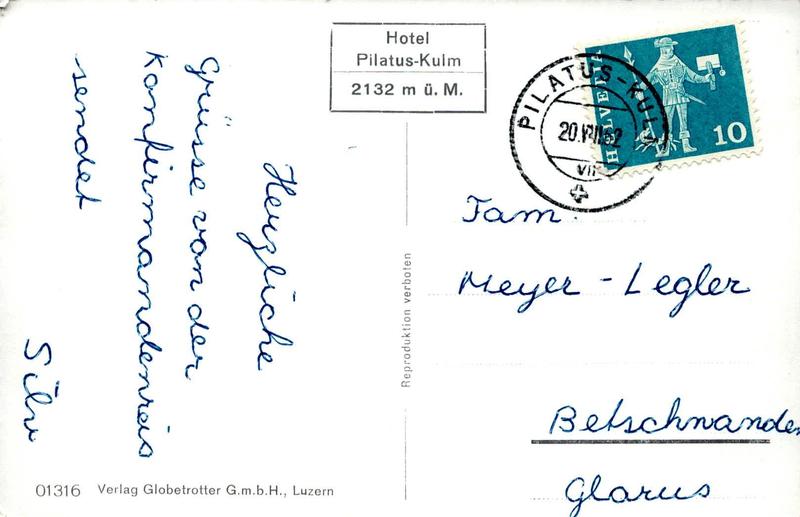 Hotel
Pilatus-Kulm
2132 m ü. M.
PILATUS-KULM
VII
HELVETIA
10
Herzliche
Grüsse von der
Konfirmandenreis
sendet
Silv
Fam.
Meyer-Legler
Betschwanden
Glarus
Reproduktion verboten
01316 Verlag Globetrotter G.m.b.H., Luzern